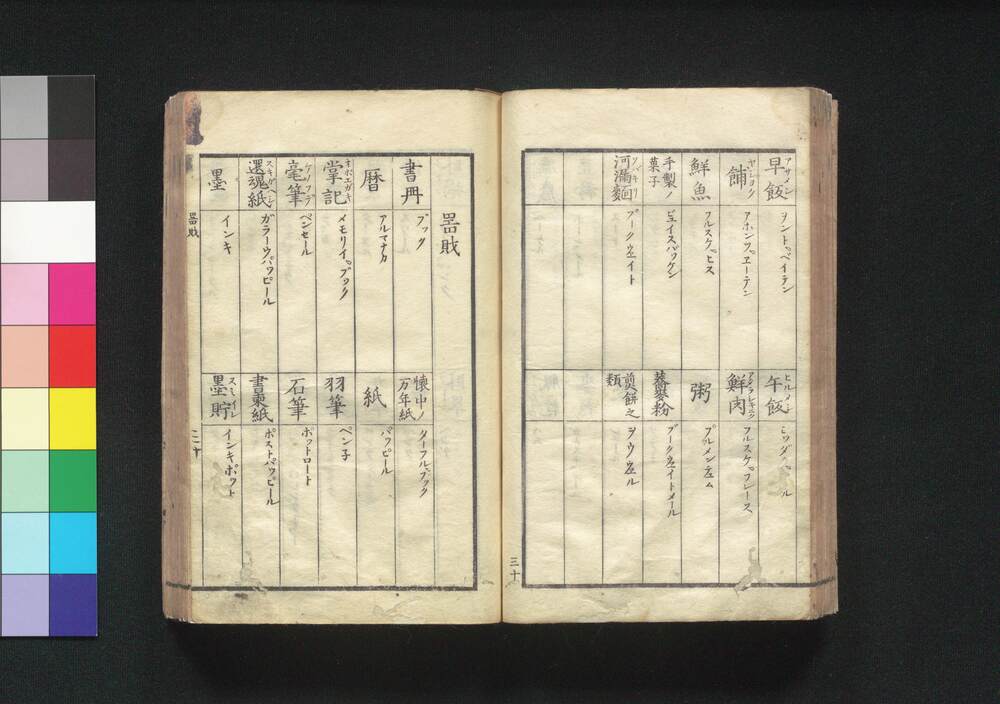 早飯 アサメシ
ヲントベイテン
午飯 ヒルメシ
鯆
アホンツヱーテン
鮮肉
フルスケフレース
鮮魚
フルスケヒス
粥
手製ノ菓子
ヱイスバッケン
蕎麥粉
ブークウェイトメール
河漏麵 ソバキリ
ブークウェイト
煎餅之類
三十
器財
書冊
ブック
懐中ノ万年紙
ターフルブック
暦
アルマナカ
紙
パッピール
掌記 オボエガキ
メモリイブック
羽筆
ペン子
毫筆
ペンセール
石筆
ポットロート
還魂紙 スキガヘシ
ガラーウパッピール
書柬紙
ポストパッピール
墨
インキ
墨貯 スミイレ
インキポット
器財